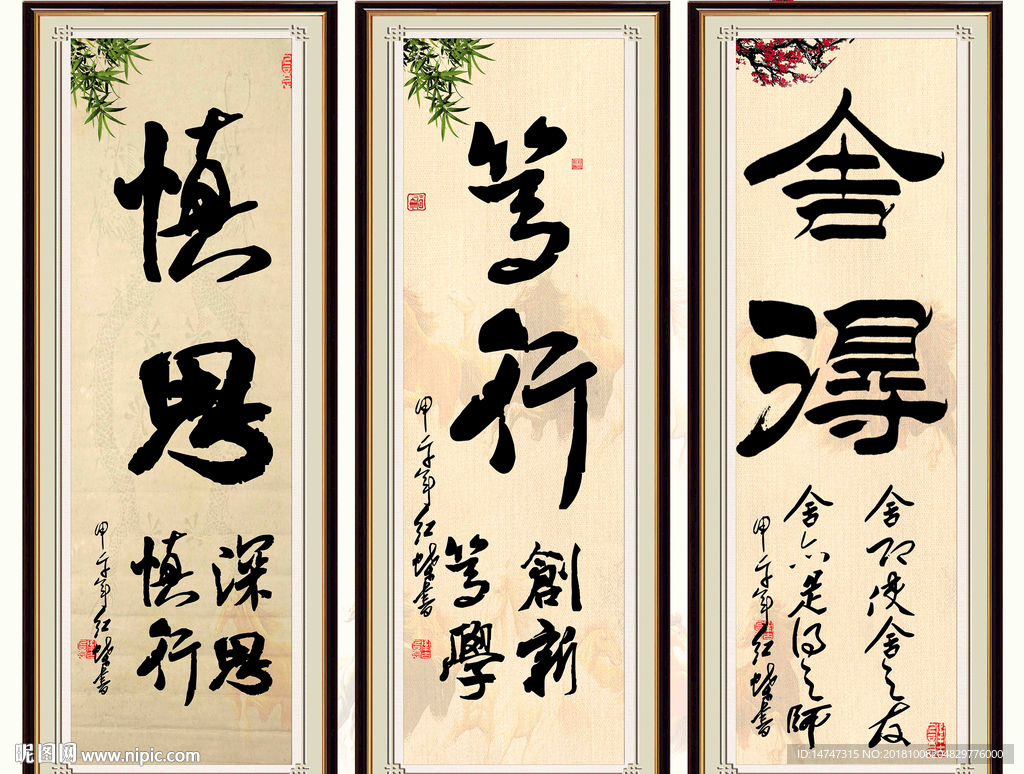 慎思
深思
慎行
甲午年红蝶書
笃行
創新
笃學
甲午年红蝶書
舍得
舍乃得
舍之友
舍亦是得之師
甲午年红蝶書
昵图网 www.nipic.com
ID:14747315 NO:20181008204829776000